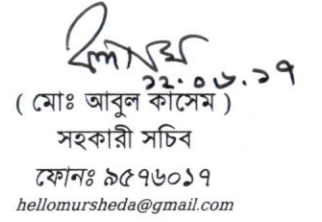 ২২.০৬.১৭
( মোঃ আবুল কাসেম )
সহকারী সচিব
ফোনঃ ৯৫৭৬০১৭
hellomursheda@gmail.com